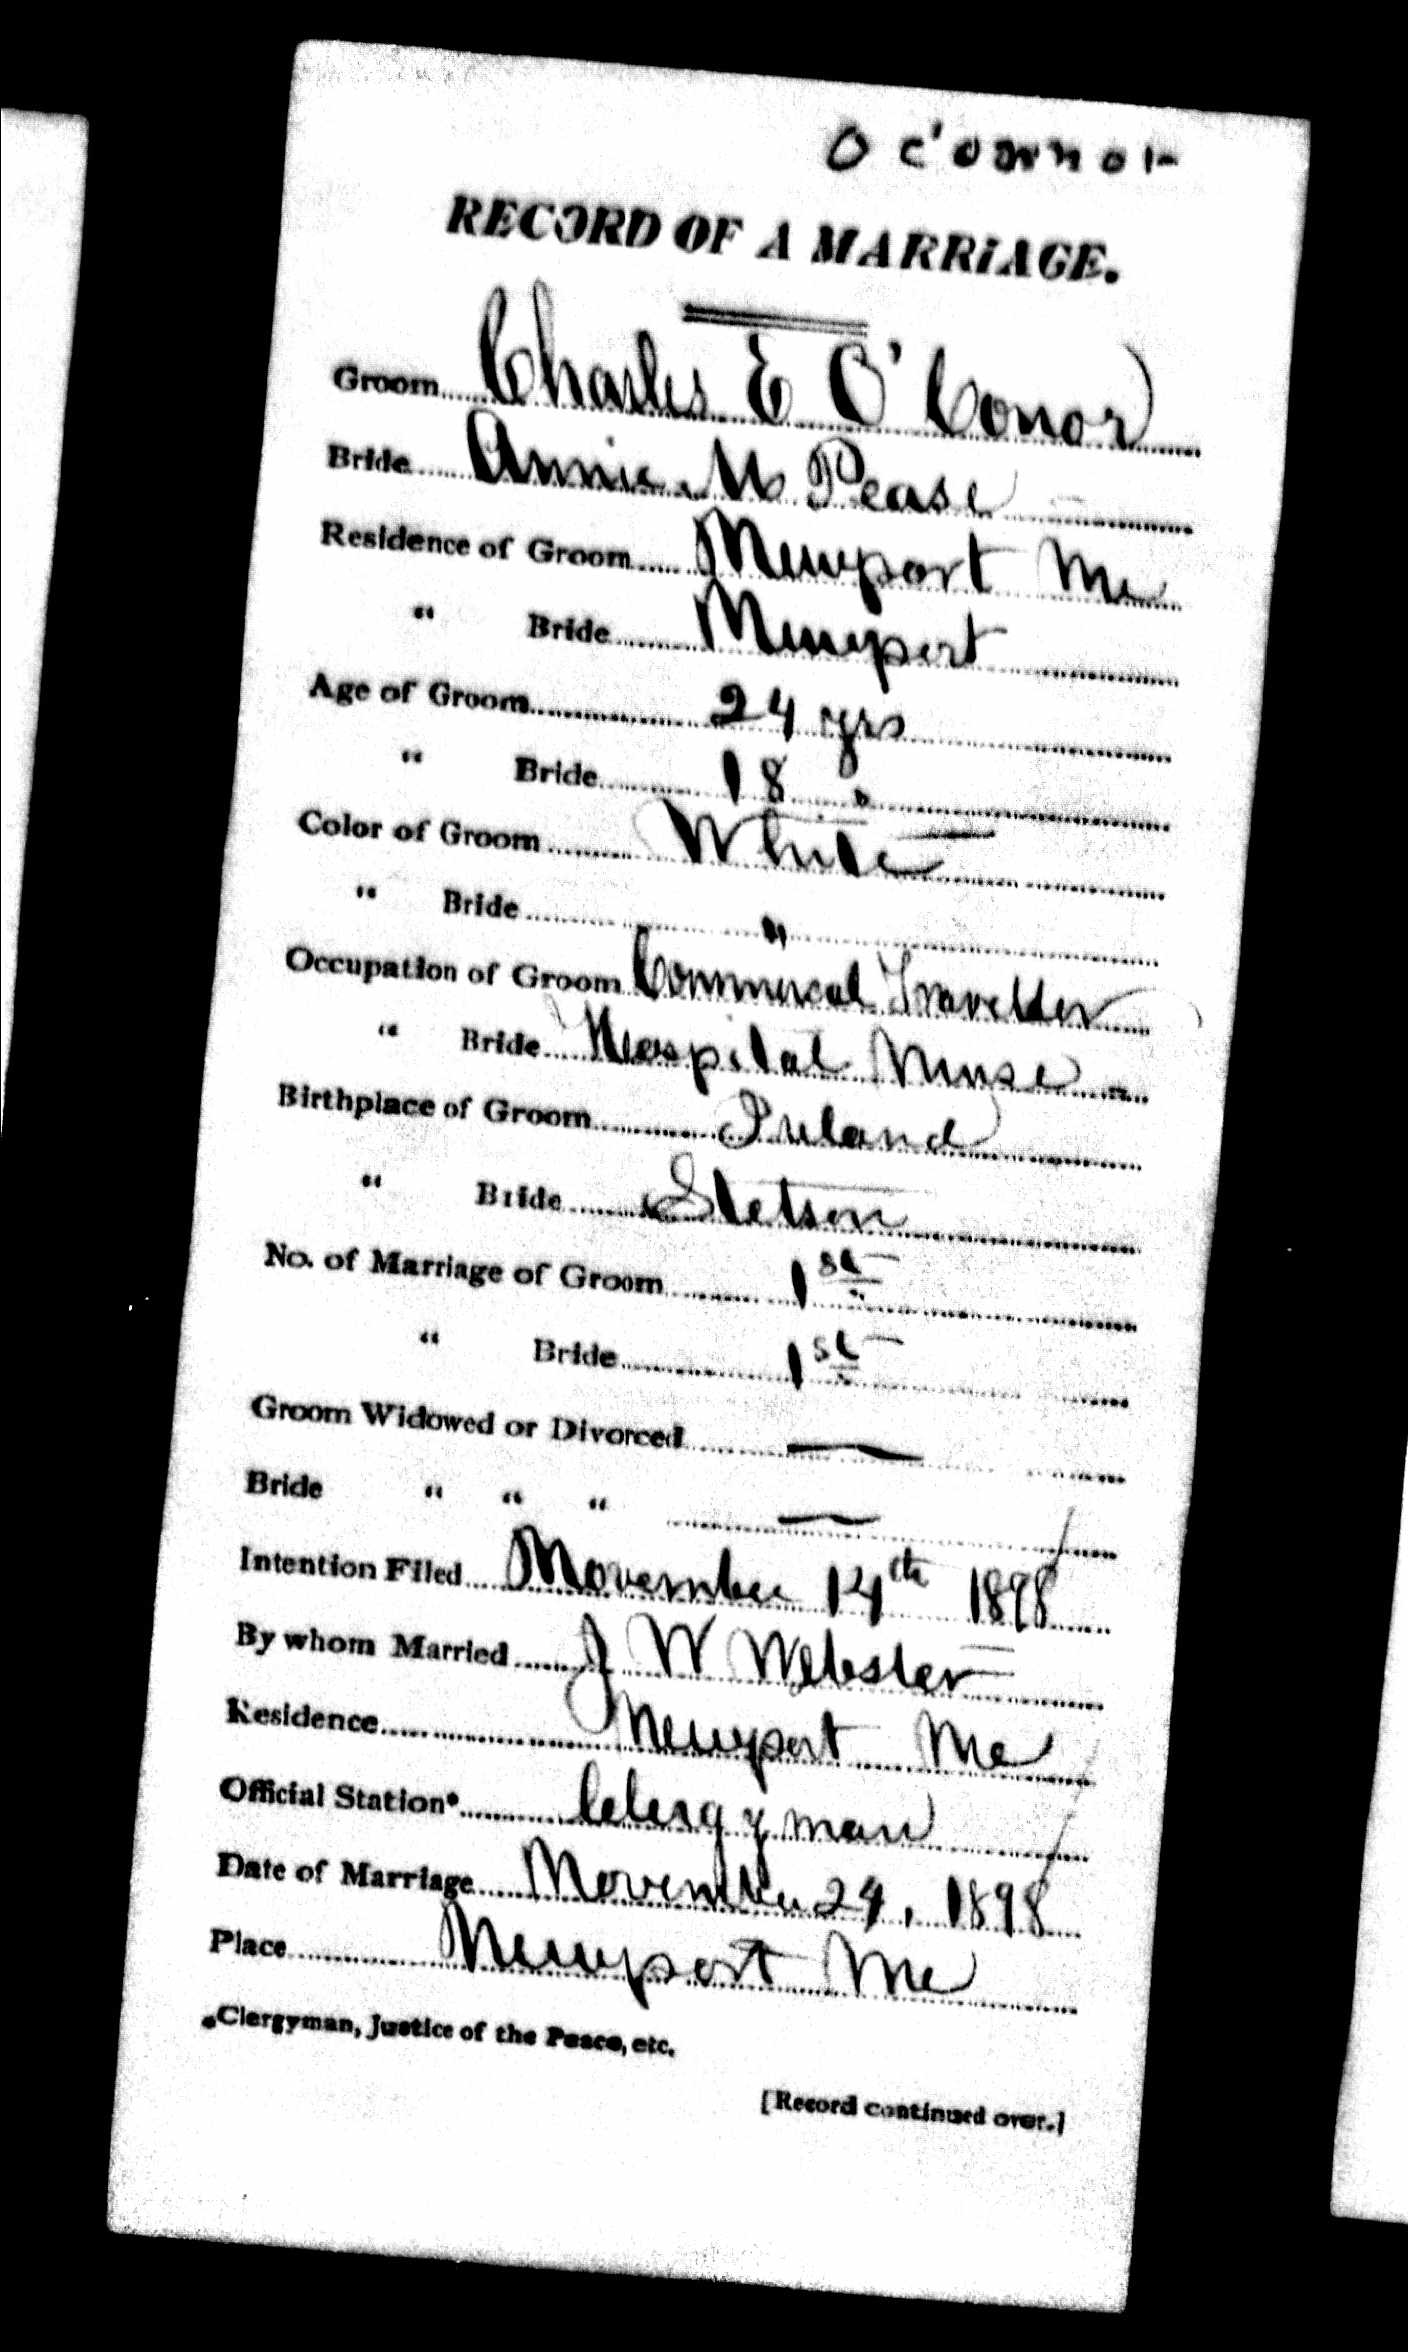 O C'onnor
RECORD OF A MARRIAGE.
Groom Charles E O'Conor
Bride Annie M Pease
Residence of Groom Newport Me
" Bride Newport
Age of Groom 24 yrs
" Bride 18 "
Color of Groom White
" Bride "
Occupation of Groom Commercal Traveller
" Bride Hospital Nurse
Birthplace of Groom Ireland
" Bride Stetson
No. of Marriage of Groom 1st
" Bride 1st
Groom Widowed or Divorced —
Bride " " " —
Intention Filed November 14th 1898
By whom Married J W Webster
Residence Newport Me
Official Station* Clergyman
Date of Marriage November 24, 1898
Place Newport Me
*Clergyman, Justice of the Peace, etc.
[Record continued over.]